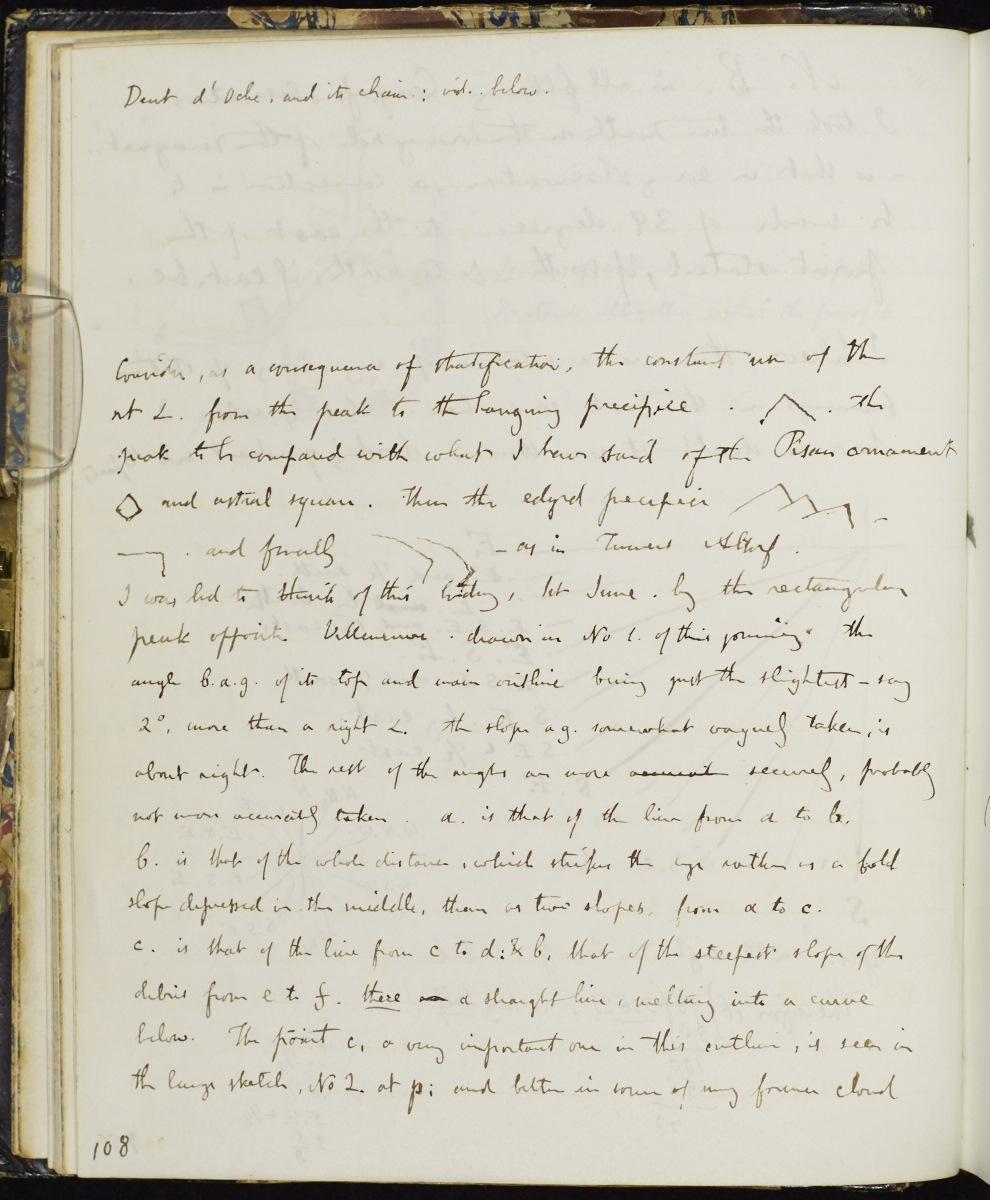 Dent d'Oche, and its chain: vid. below.
Consider, as a consequence of stratification, the constant use of the
rt ∠. from the peak to the hanging precipice . . the
peak to be compared with what I have said of the Pisan ornament
◇ and astral square. Then the edged precipice
. and finally - as in
I was led to think of this today, 1st June. by the rectangular
peak opposite Villeneuve. drawn in No 1. of this journey. the
angle b.a.g. of its top and main outline being just the slightest - say
2°, more than a right ∠. the slope a.g. somewhat vaguely taken, is
about right. The rest of the angles are more securely, probably
not more accurately taken. a. is that of the line from a to b.
b. is that of the whole distance, which strikes the eye rather as a bold
slope depressed in the middle, than as two slopes, from a to c.
c. is that of the line from c to d: & b, that of the steepest slope of the
debris from e to f. there a straight line, melting into a curve
below. The point c, a very important one in this outline, is seen in
the large sketch, No 2. at p; and better in some of my former cloud
108